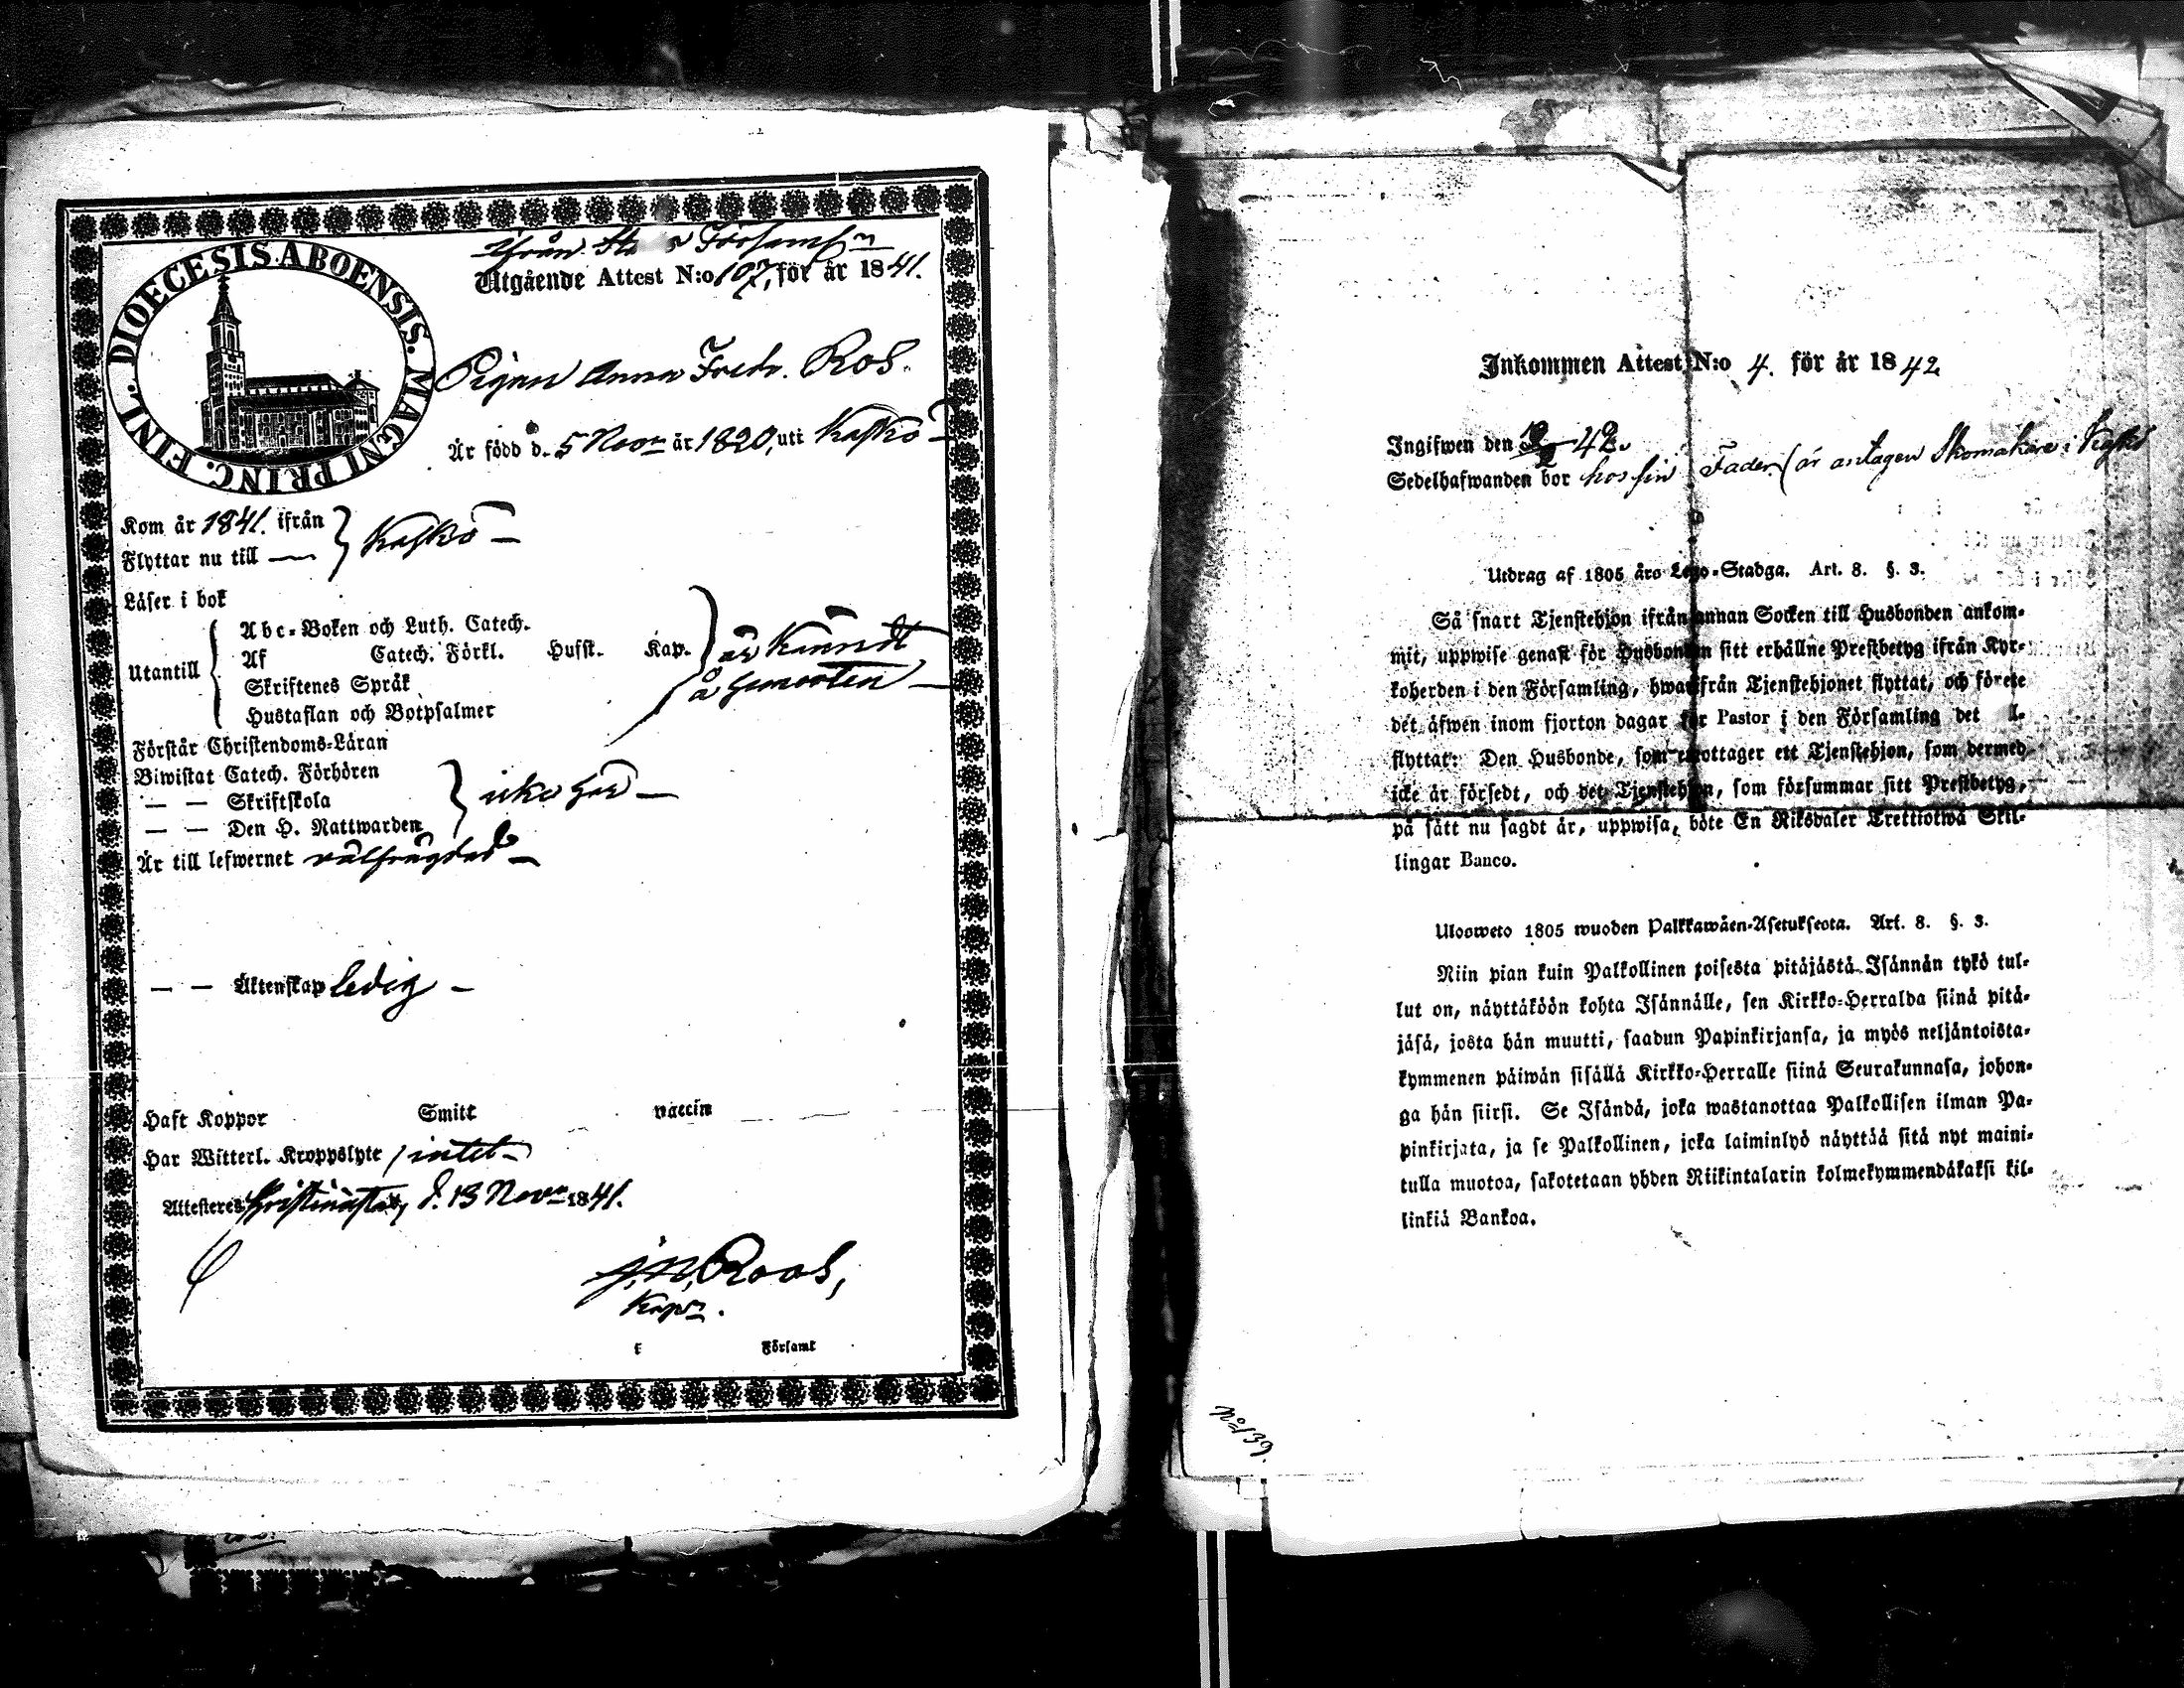 DIOECESIS ABOENSIS. MAGNI PRINC. FINL.
Ifrån Församln
Utgående Attest N:o 107, för år 1841.
Pigan Anna Fredr. Ros.
Är född d. 5 Novr år 1820, uti Kaskö
Kom år 1841. ifrån } Kaskö
Flyttar nu till
Läser i bok
Utantill { Abc-Boken och Luth. Catech.
Af Catech. Förkl. Husst. Kap. } är kändt
Skriftenes Språk å hemorten
Hustaflan och Botpsalmer
Förstår Christendoms-Läran
Biwistat Catech. Förhören
— — Skriftskola } icke här
— — Den H. Nattwarden
Är till lefwernet välfrägdad
— — Äktenskap ledig
Haft Koppor Smitt vaccin
Har Witterl. Kroppslyte intet
Attesteres Christinestad, d. 13 Novr 1841.
J. N. Roos,
Kapn.
i Församl
Inkommen Attest N:o 4. för år 1842
Ingifwen den 42.
Sedelhafwanden bor hos sin Fader (är antagen Skomakare i
Utdrag af 1805 års Lego-Stadga. Art. 8. §. 3.
Så snart Tjenstehjon ifrån annan Socken till Husbonden ankom-
mit, uppwise genast för Husbonden sitt erhållne Prestbetyg ifrån Kyr-
koherden i den Församling, hwarifrån Tjenstehjonet flyttat, och förete
det äfwen inom fjorton dagar för Pastor i den Församling det
flyttat: Den Husbonde, som emottager ett Tjenstehjon, som dermed
icke är försedt, och det Tjenstehjon, som försummar sitt Prestbetyg,
på sätt nu sagdt är, uppwisa, böte En Riksdaler Trettiotwå Skil-
lingar Banco.
Ulosweto 1805 wuoden Palkkawäen-Asetuksesta. Art. 8. §. 3.
Niin pian kuin Palkollinen toisesta pitäjästä Isännän tykö tul-
lut on, näyttäköön kohta Isännälle, sen Kirkko-Herralda siinä pitä-
jäsä, josta hän muutti, saadun Papinkirjansa, ja myös neljäntoista-
kymmenen päiwän sisällä Kirkko-Herralle siinä Seurakunnasa, johon-
ga hän siirsi. Se Isändä, joka wastanottaa Palkollisen ilman Pa-
pinkirjata, ja se Palkollinen, joka laiminlyö näyttää sitä nyt maini-
tulla muotoa, sakotetaan yhden Riikintalarin kolmekymmendäkaksi kil-
linkiä Bankoa.
No 139.